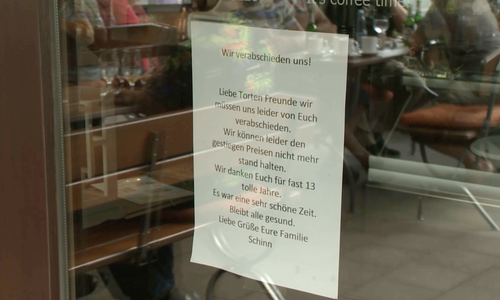 It's coffee time
Wir verabschieden uns!
Liebe Torten Freunde wir
müssen uns leider von Euch
verabschieden.
Wir können leider den
gestiegen Preisen nicht mehr
stand halten.
Wir danken Euch für fast 13
tolle Jahre.
Es war eine sehr schöne Zeit.
Bleibt alle gesund.
Liebe Grüße Eure Familie
Schinn